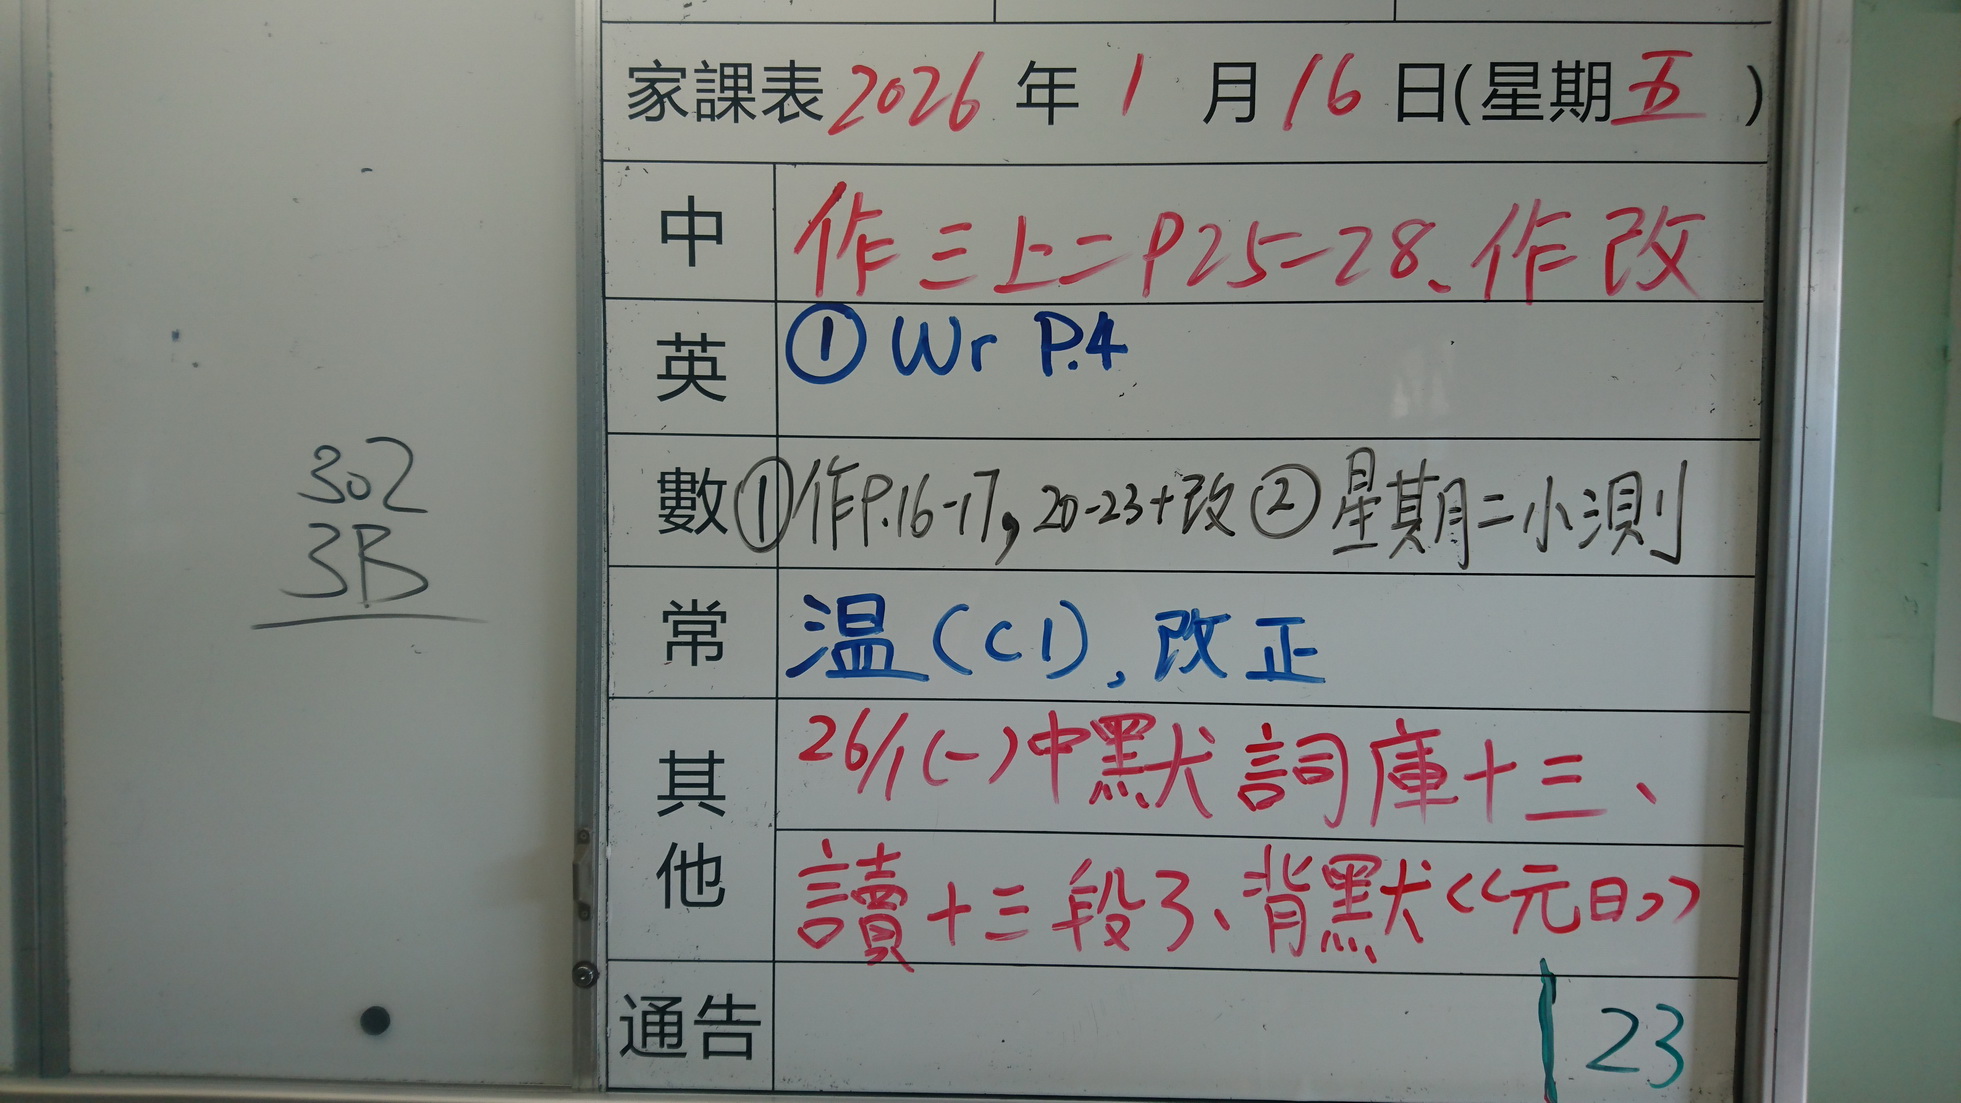 302
3B
家課表 2026 年 1 月 16 日(星期五)
中 作三上二P25-28、作改
英 ① Wr P.4
數 ①作P.16-17, 20-23+改 ②星期二小測
常 温(C1), 改正
其他 26/1(一)中默詞庫十三、
讀十三段3、背默《元日》
通告 23